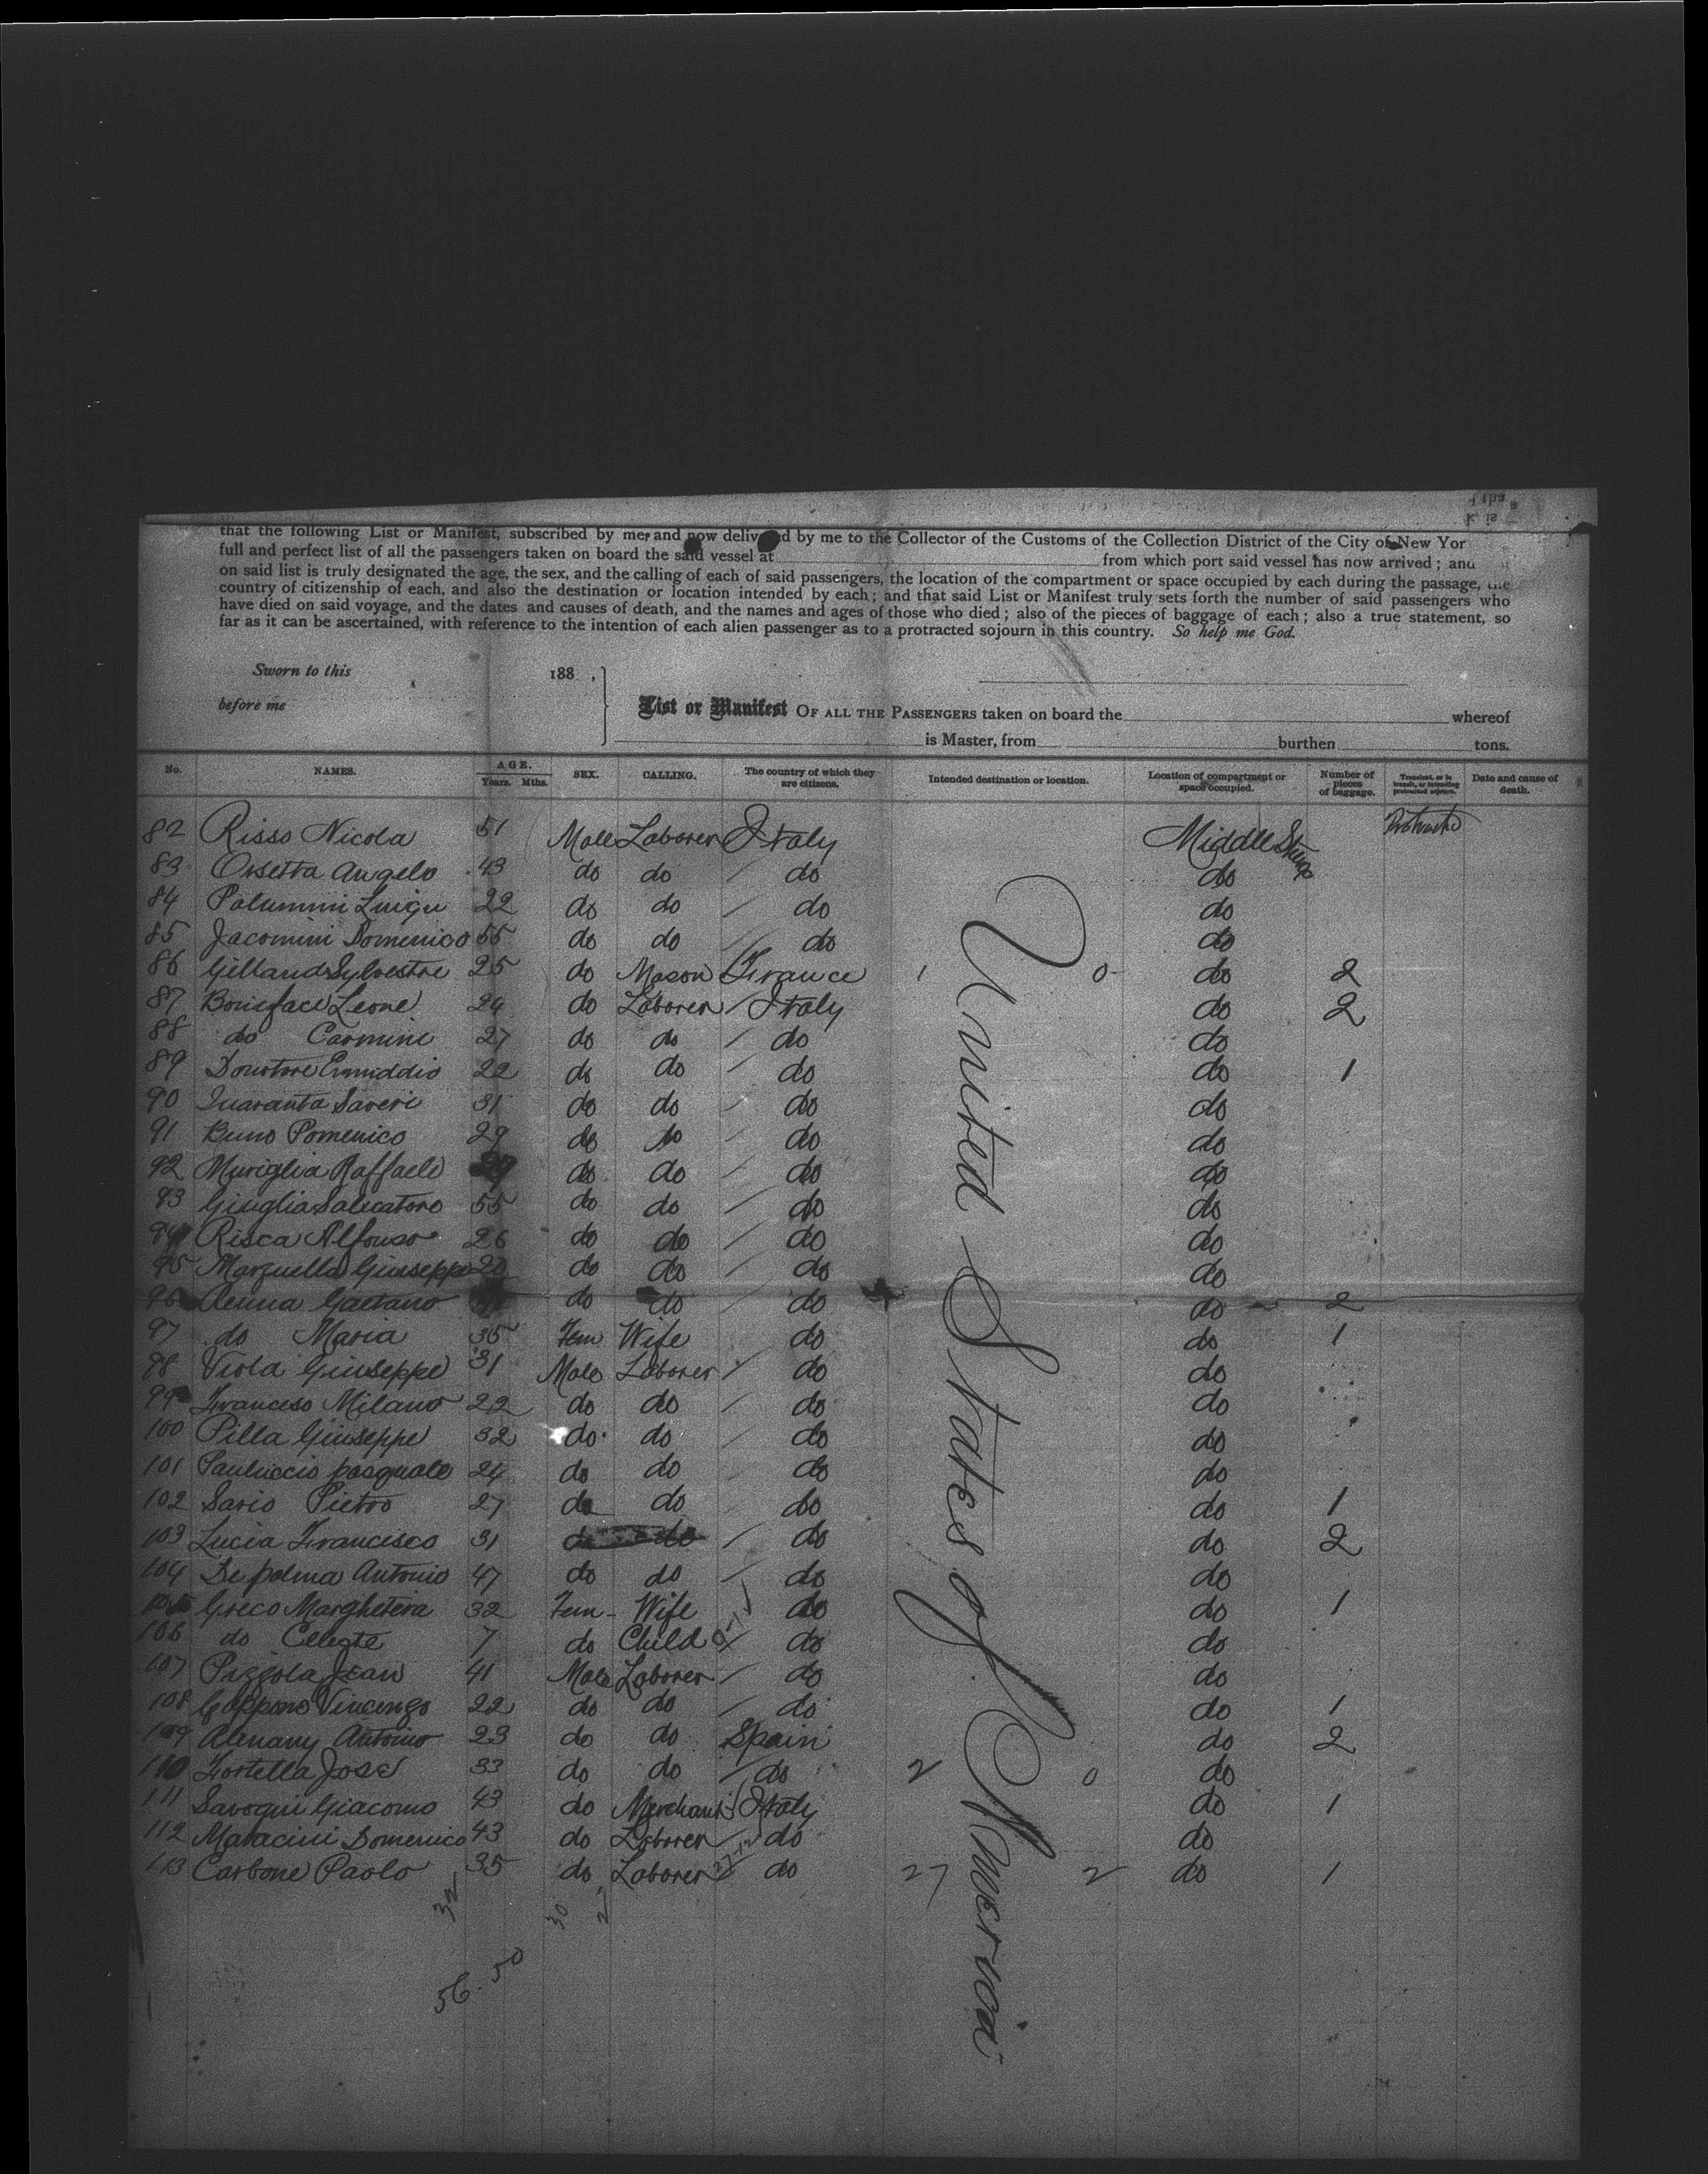 that the following List or Manifest, subscribed by me, and now delivered by me to the Collector of the Customs of the Collection District of the City of New Yor
full and perfect list of all the passengers taken on board the said vessel at from which port said vessel has now arrived; and
on said list is truly designated the age, the sex, and the calling of each of said passengers, the location of the compartment or space occupied by each during the passage, the
country of citizenship of each, and also the destination or location intended by each; and that said List or Manifest truly sets forth the number of said passengers who
have died on said voyage, and the dates and causes of death, and the names and ages of those who died; also of the pieces of baggage of each; also a true statement, so
far as it can be ascertained, with reference to the intention of each alien passenger as to a protracted sojourn in this country. So help me God.
Sworn to this 188 ,
before me
List or Manifest OF ALL THE PASSENGERS taken on board the whereof
is Master, from burthen tons.
No. NAMES. AGE. Years. Mths. SEX. CALLING. The country of which they are citizens. Intended destination or location. Location of compartment or space occupied. Number of pieces of baggage. Transient, or in transit, or intending protracted sojourn. Date and cause of death.
82 Risso Nicola 51 Male Laborer Italy Middle
83 Orsetta Angelo 43 do do do do
84 Palummi Luigu 22 do do do do
85 Jacomini Domenico 55 do do do do
86 Gilland Sylvestre 25 do Mason France 1 0 do 2
87 Boniface Leone 24 do Laborer Italy do 2
88 do Carmini 27 do do do do
89 Donatore Emiddio 22 do do do do 1
90 Quaranta Saveri 31 do do do do
91 Buno Pomenico 29 do do do do
92 Muriglia Raffaele do do do do
93 Giuglia Salvatore 55 do do do do
94 Risca Alfonso 26 do do do do
95 Marzuella Giuseppe 20 do do do do
96 Renna Gaetano do do do do 2
97 do Maria 35 Fem Wife do do 1
98 Viola Giuseppe 31 Male Laborer do do
99 Franceso Milano 22 do do do do
100 Pilla Giuseppe 32 do do do do
101 Pauluccio pasquale 24 do do do do
102 Sario Pietro 27 do do do do 1
103 Lucia Francisco 31 do do do do 2
104 De palma Antonio 47 do do do do
105 Greco Marghetera 32 Fem Wife do do 1
106 do Celeste 7 do Child do do
107 Pizzola Jean 41 Male Laborer do do
108 Coppano Vincenzo 22 do do do do 1
109 Alemany Antonio 23 do do Spain do 2
110 Fortella Jose 33 do do do 2 0 do
111 Savogni Giacomo 43 do Merchant Italy do 1
112 Maracini Domenico 43 do Laborer do do
113 Carbone Paolo 35 do Laborer do 27 2 do 1
United States of America
32
30 2
56.50